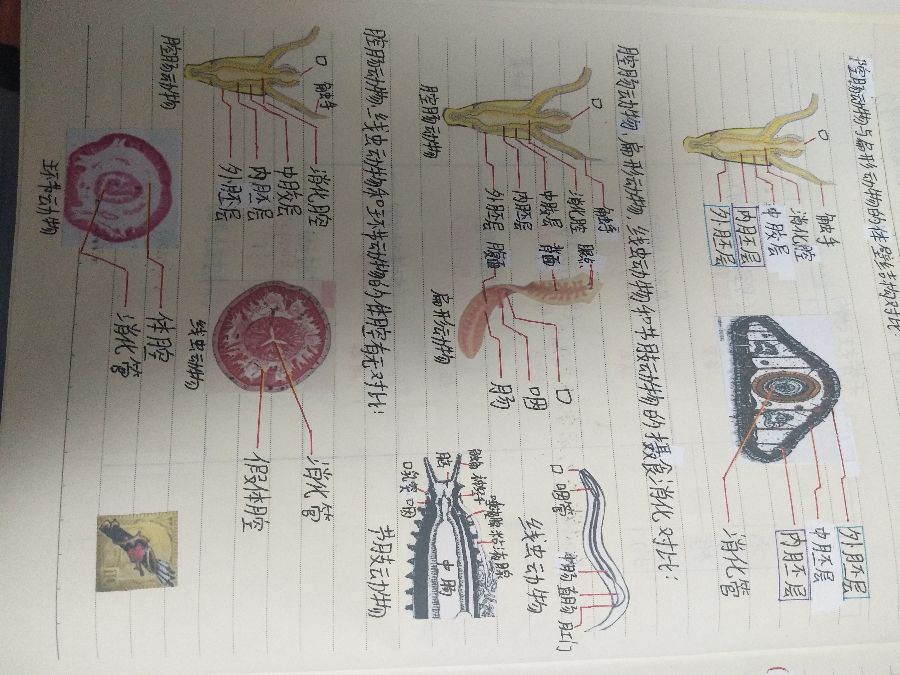 腔肠动物与扁形动物的体壁结构对比
口
触手
消化腔
中胶层
内胚层
外胚层
外胚层
中胚层
内胚层
消化管
腔肠动物、扁形动物、线虫动物和节肢动物的摄食消化对比:
口
触手
消化腔
中胶层
内胚层
外胚层
腔肠动物
眼点
背面
腹面
口
咽
肠
扁形动物
口
咽管
中肠
直肠
肛门
线虫动物
口
咽
中肠
节肢动物
腔肠动物、线虫动物和环节动物的体腔有无对比:
口
触手
消化腔
中胶层
内胚层
外胚层
腔肠动物
消化管
假体腔
线虫动物
体腔
消化管
环节动物